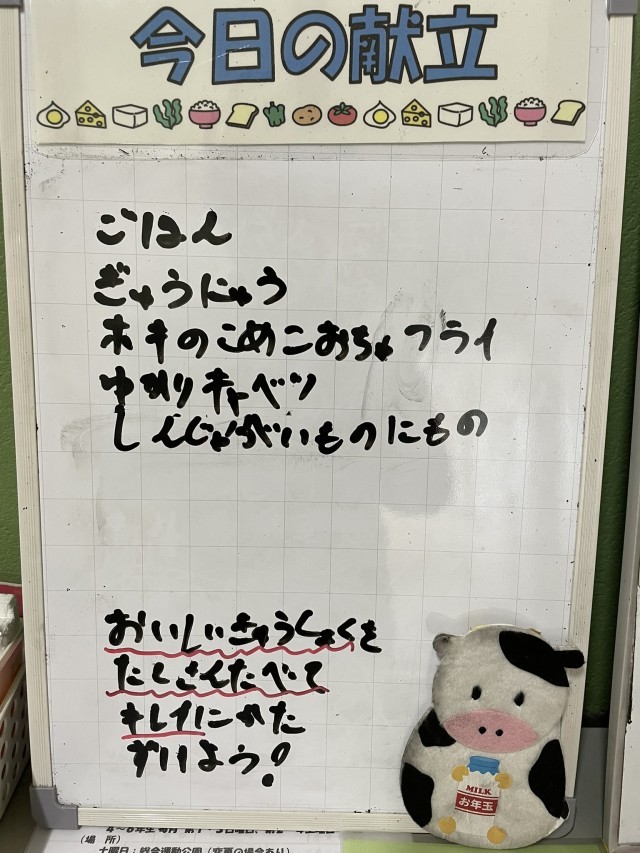 今日の献立
ごはん
ぎゅうにゅう
ホキのこめこおちゃフライ
ゆかりキャベツ
しんじゃがいものにもの
おいしいきゅうしょくを
たくさんたべて
キレイにかた
づけよう！
MILK
お年玉
(場 所)
土曜日：総合運動公園（変更の場合あり）